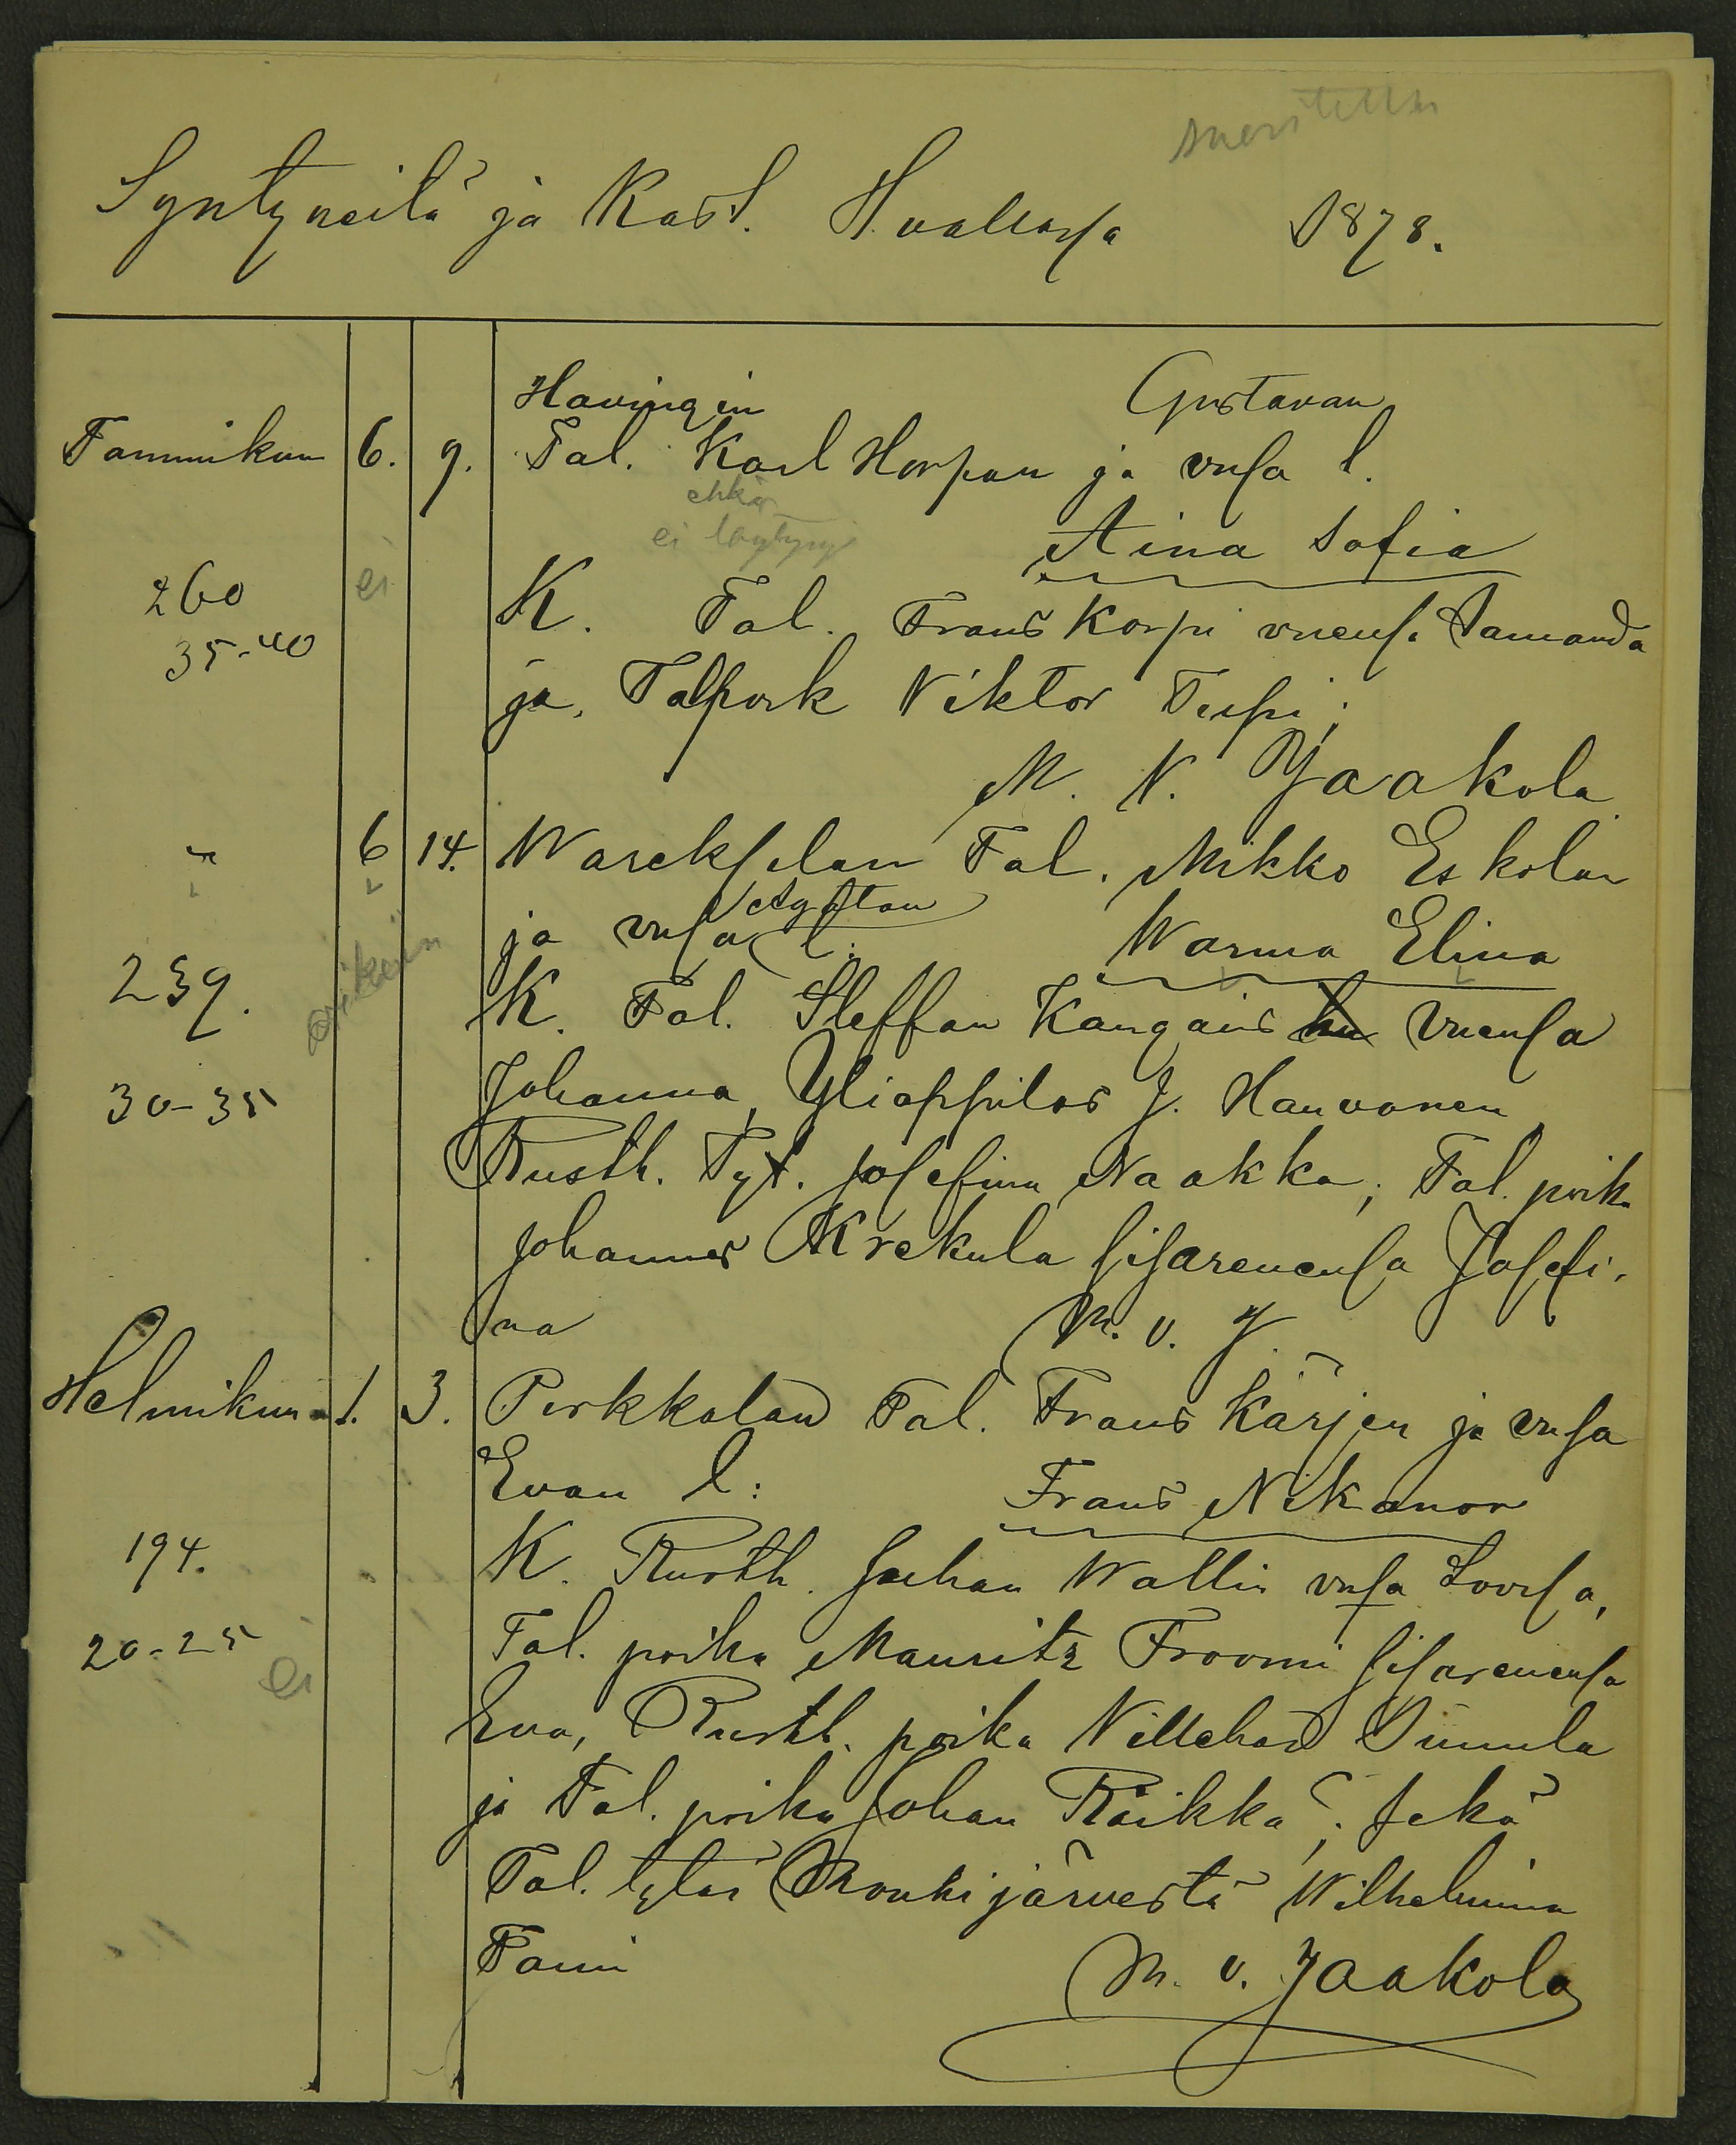 Syntyneitä ja Kast. H.vallassa 1878.
Havingin Gustavan
Tammikuu 6. 9. Tal. Karl Horpan ja vmsa l.
ehkä
ei löytyny
Aina Sofia
260 ei K. Tal. Frans Korpi vnensa Amanda
35-40
ja Talpoik Viktor Teipi;
M. V. Jaakola
" 6 14. Warekselan Tal. Mikko Eskolan
Agatan
ja vmsa l: Warma Elina
239. oikein K. Tal. Steffan Kangais vnensa
30-35 Johanna, Ylioppilas J. Hanvonen
Rusth. Tyt. Josefina Naakka; Tal. poik.
Johannes Krekula sisarenensa Josefi-
na M. v. J.
Helmikuu 1. 3. Perkkolan Tal. Frans Kärjen ja vmsa
Evan l: Frans Nikanor
194. K. Rusth. Juhan Wallin vmsa Lovisa,
20-25 ei Tal. poika Mauritz Froomi sisarenensa
Eva, Rusth. poika Villehad Simula
ja Tal. poika Johan Räikkä; sekä
Tal. tytär Mouhijärvestä Wilhelmina
Tomi M. v. Jaakola